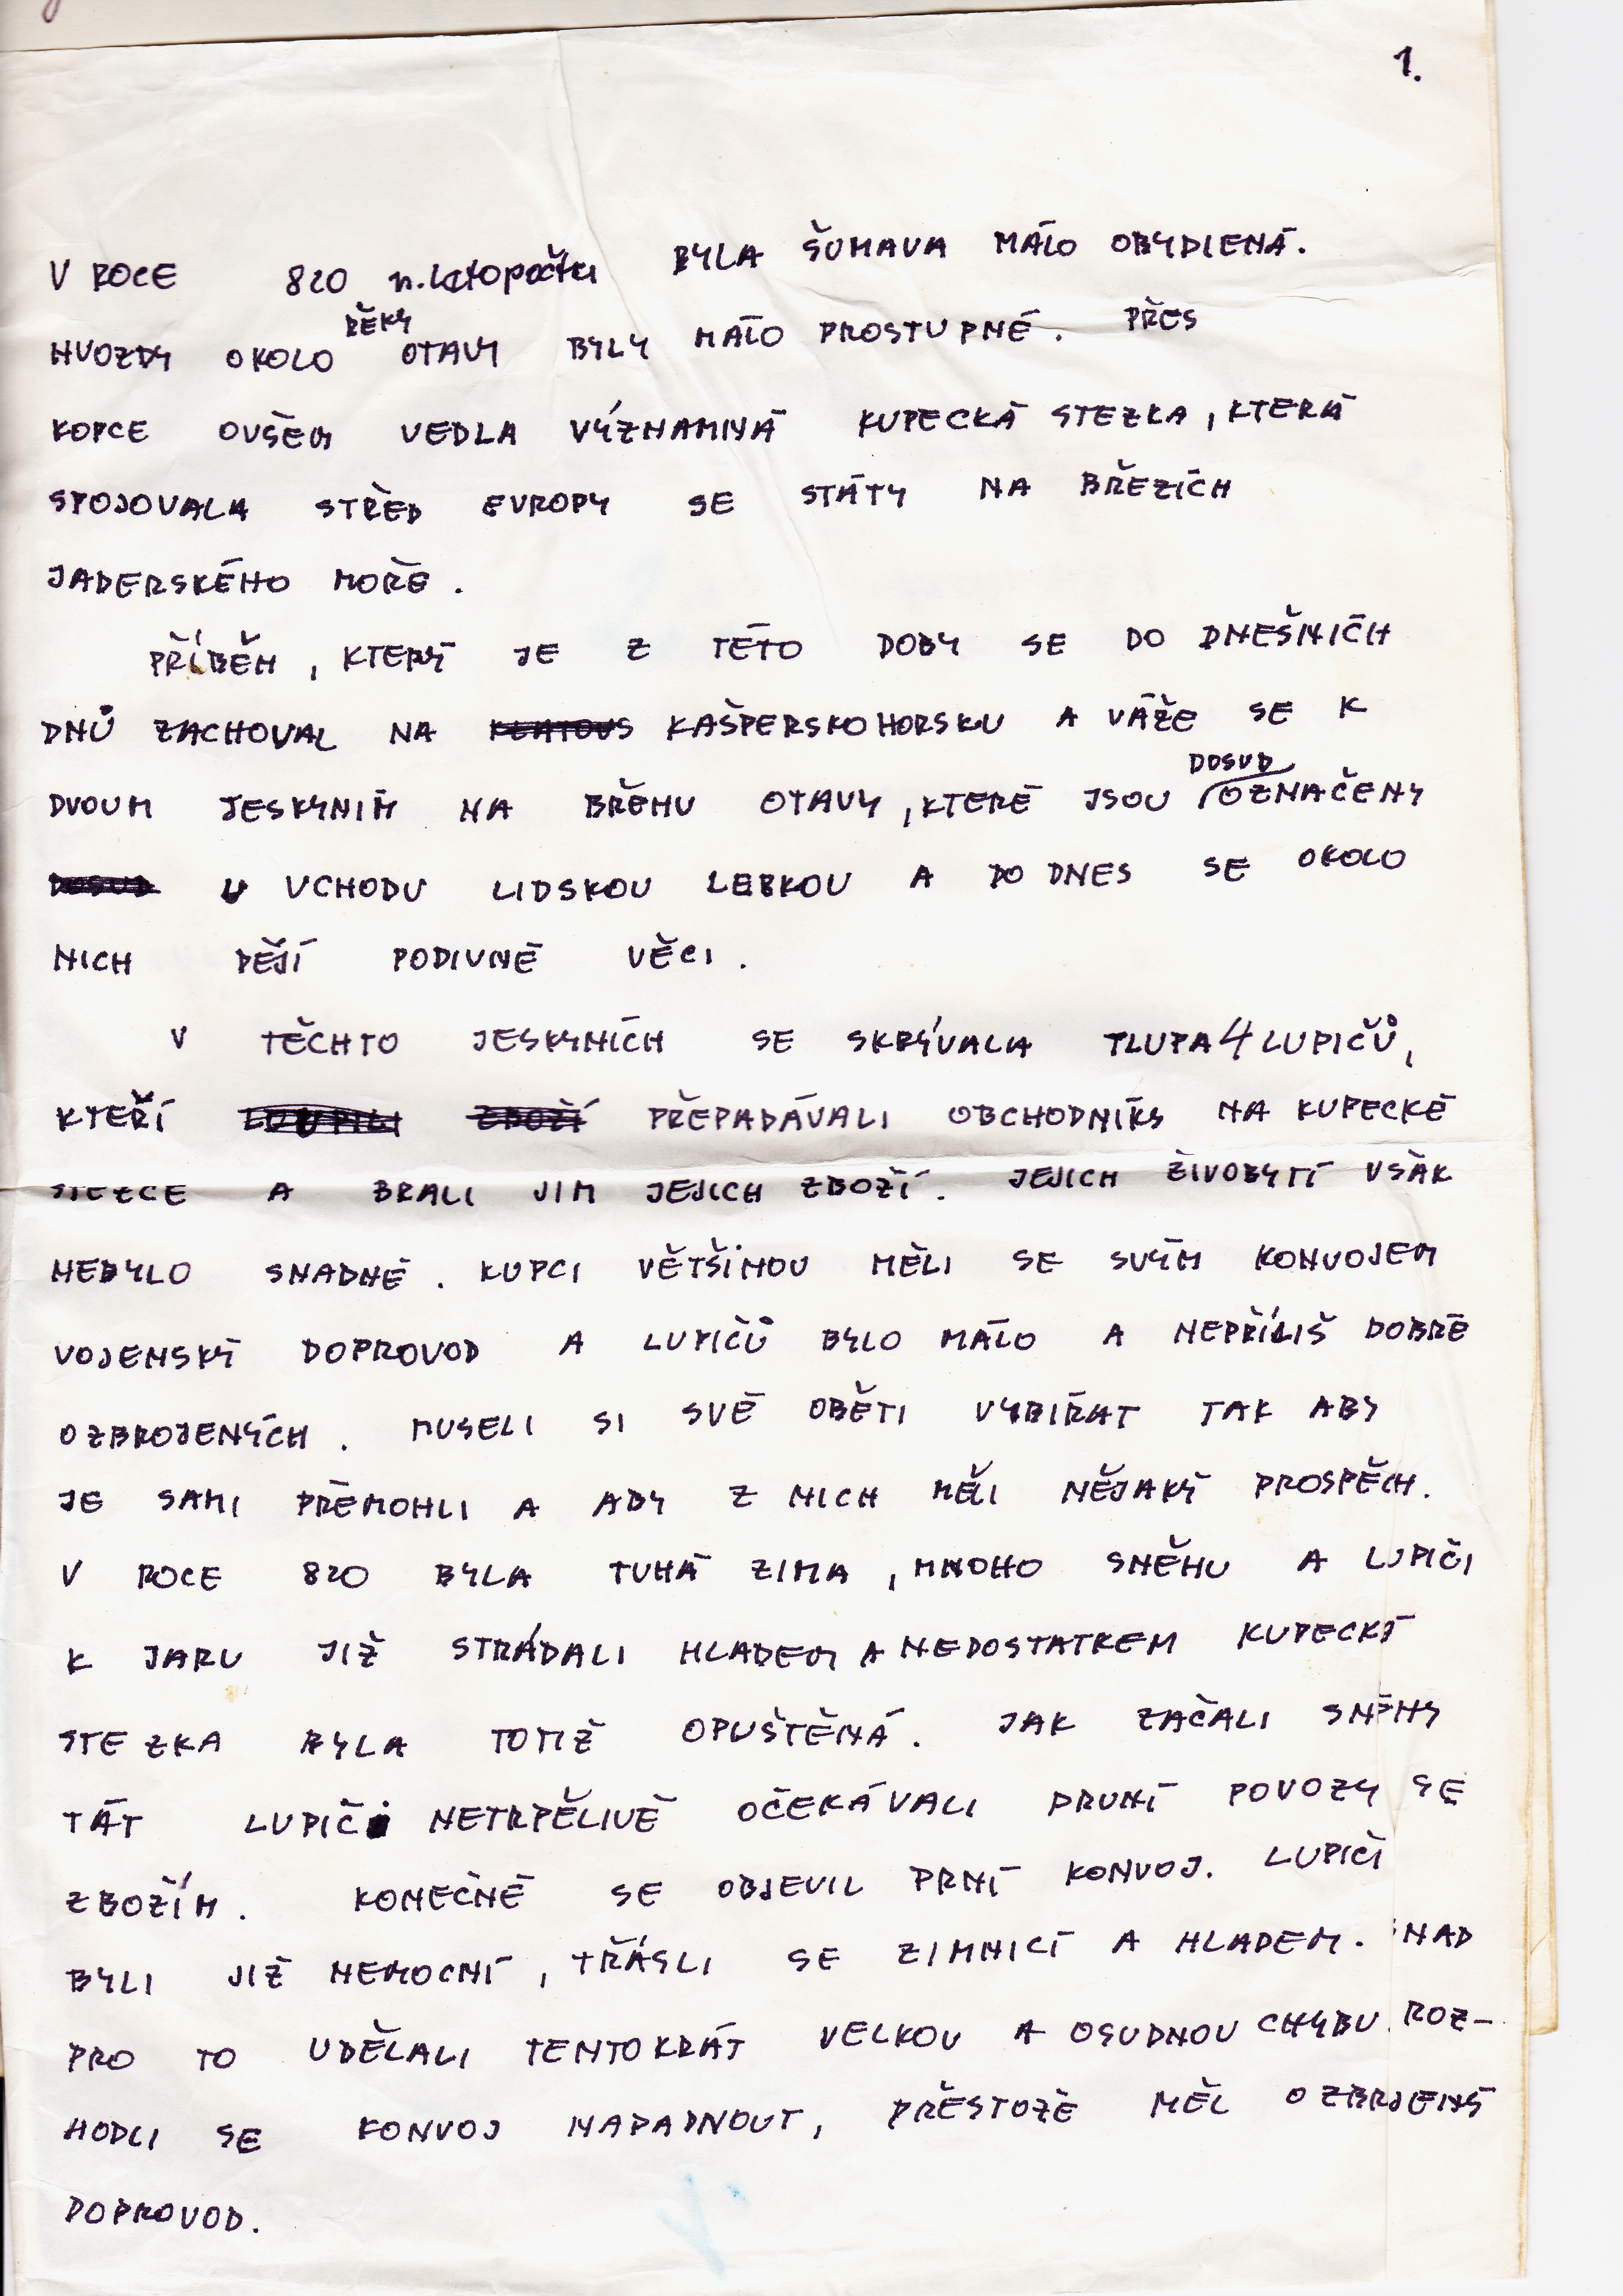 1.
V ROCE 820 n. letopočtu BYLA ŠUMAVA MÁLO OBYDLENÁ.
HVOZDY OKOLO ŘĚKY OTAVY BYLY MÁLO PROSTUPNÉ. PŘES
KOPCE OVŠEM VEDLA VÝZNAMNÁ KUPECKÁ STEZKA, KTERÁ
SPOJOVALA STŘED EVROPY SE STÁTY NA BŘEZÍCH
JADERSKÉHO MOŘE.
PŘÍBĚH, KTERÝ JE Z TÉTO DOBY SE DO DNEŠNÍCH
DNŮ ZACHOVAL NA KAŠPERSKOHORSKU A VÁŽE SE K
DVOUM JESKYNÍM NA BŘEHU OTAVY, KTERÉ JSOU DOSUD OZNAČENY
U VCHODU LIDSKOU LEBKOU A DO DNES SE OKOLO
NICH DĚJÍ PODIVNÉ VĚCI.
V TĚCHTO JESKYNÍCH SE SKRÝVALA TLUPA 4 LUPIČŮ,
KTEŘÍ PŘEPADÁVALI OBCHODNÍKS NA KUPECKÉ
STEZCE A BRALI JIM JEJICH ZBOŽÍ. JEJICH ŽIVOBYTÍ VŠAK
NEBYLO SNADNÉ. KUPCI VĚTŠINOU MĚLI SE SVÝM KONVOJEM
VOJENSKÝ DOPROVOD A LUPIČŮ BYLO MÁLO A NEPŘÍLIŠ DOBŘE
OZBROJENÝCH. MUSELI SI SVÉ OBĚTI VYBÍRAT TAK ABY
JE SAMI PŘEMOHLI A ABY Z NICH MĚLI NĚJAKÝ PROSPĚCH.
V ROCE 820 BYLA TUHÁ ZIMA, MNOHO SNĚHU A LUPIČI
K JARU JIŽ STRÁDALI HLADEM A NEDOSTATKEM KUPECKÁ
STEZKA BYLA TOTIŽ OPUŠTĚNÁ. JAK ZAČALI SNĚHY
TÁT LUPIČI NETRPĚLIVĚ OČEKÁVALI PRVNÍ POVOZY SE
ZBOŽÍM. KONEČNĚ SE OBJEVIL PRNÍ KONVOJ. LUPIČI
BYLI JIŽ NEMOCNÍ, TŘÁSLI SE ZIMNICÍ A HLADEM. SNAD
PRO TO UDĚLALI TENTOKRÁT VELKOU A OSUDNOU CHYBU. ROZ-
HODLI SE KONVOJ NAPADNOUT, PŘESTOŽE MĚL OZBRJENÝ
DOPROVOD.